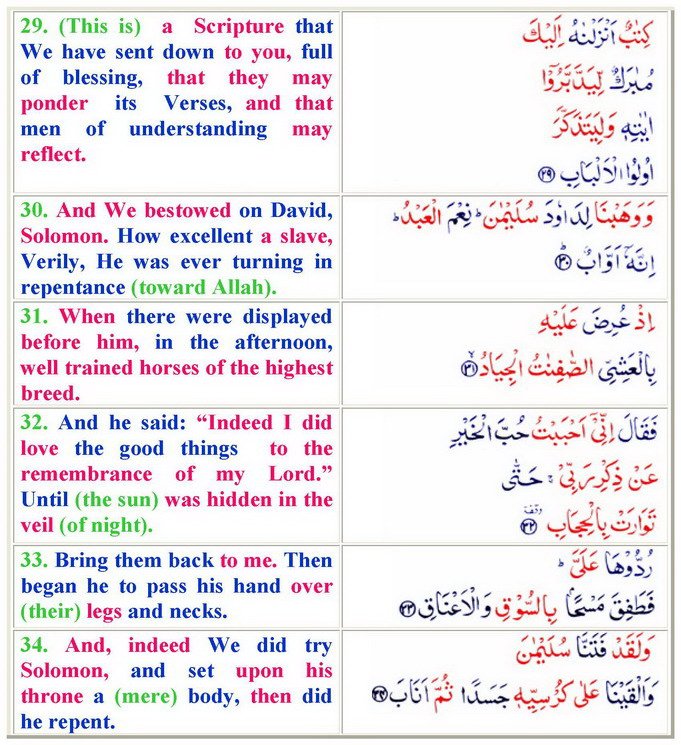 29. (This is) a Scripture that
We have sent down to you, full
of blessing, that they may
ponder its Verses, and that
men of understanding may
reflect.
كِتٰبٌ اَنْزَلْنٰهُ اِلَيْكَ
مُبٰرَكٌ لِّيَدَّبَّرُوْۤا
اٰيٰتِهٖ وَلِيَتَذَكَّرَ
اُولُوا الْاَلْبَابِ ﴿۲۹﴾
30. And We bestowed on David,
Solomon. How excellent a slave,
Verily, He was ever turning in
repentance (toward Allah).
وَوَهَبْنَا لِدَاوٗدَ سُلَيْمٰنَ ؕ نِعْمَ الْعَبْدُ ؕ
اِنَّهٗۤ اَوَّابٌ ؕ ﴿۳۰﴾
31. When there were displayed
before him, in the afternoon,
well trained horses of the highest
breed.
اِذْ عُرِضَ عَلَيْهِ
بِالْعَشِيِّ الصّٰفِنٰتُ الْجِيَادُ ۙ ﴿۳۱﴾
32. And he said: “Indeed I did
love the good things to the
remembrance of my Lord.”
Until (the sun) was hidden in the
veil (of night).
فَقَالَ اِنِّيْۤ اَحْبَبْتُ حُبَّ الْخَيْرِ
عَنْ ذِكْرِ رَبِّيْ ۚ حَتّٰى
تَوَارَتْ بِالْحِجَابِ ﴿۳۲﴾ وقفة
33. Bring them back to me. Then
began he to pass his hand over
(their) legs and necks.
رُدُّوْهَا عَلَيَّ ؕ
فَطَفِقَ مَسْحًۢا بِالسُّوْقِ وَالْاَعْنَاقِ ﴿۳۳﴾
34. And, indeed We did try
Solomon, and set upon his
throne a (mere) body, then did
he repent.
وَلَقَدْ فَتَنَّا سُلَيْمٰنَ
وَاَلْقَيْنَا عَلٰى كُرْسِيِّهٖ جَسَدًا ثُمَّ اَنَابَ ﴿۳۴﴾